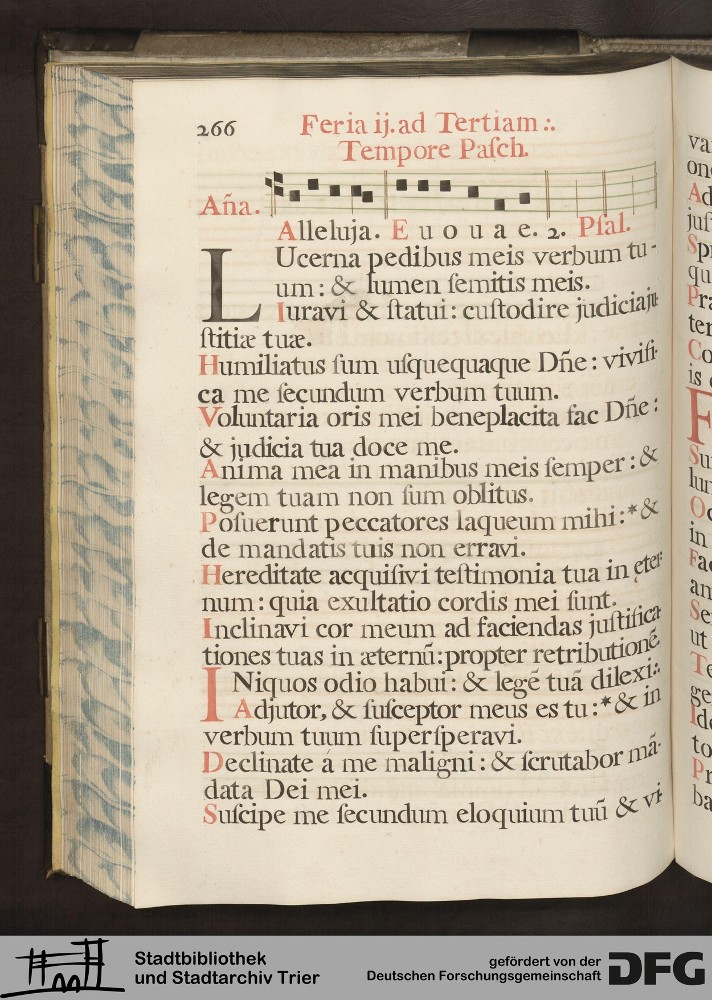 266 Feria ij. ad Tertiam :.
Tempore Paſch.
Aña.
Alleluja. E u o u a e. 2. Pſal.
LUcerna pedibus meis verbum tu-
um: & lumen ſemitis meis.
Iuravi & ſtatui: cuſtodire judicia ju-
ſtitiæ tuæ.
Humiliatus ſum uſquequaque Dñe: vivifi-
ca me ſecundum verbum tuum.
Voluntaria oris mei beneplacita fac Dñe:
& judicia tua doce me.
Anima mea in manibus meis ſemper: &
legem tuam non ſum oblitus.
Poſuerunt peccatores laqueum mihi:* &
de mandatis tuis non erravi.
Hereditate acquiſivi teſtimonia tua in ęter-
num: quia exultatio cordis mei ſunt.
Inclinavi cor meum ad faciendas juſtifica-
tiones tuas in æternū: propter retributionē.
INiquos odio habui: & legē tuā dilexi:.
Adjutor, & ſuſceptor meus es tu:* & in
verbum tuum ſuperſperavi.
Declinate á me maligni: & ſcrutabor mā-
data Dei mei.
Suſcipe me ſecundum eloquium tuū & vi-
Stadtbibliothek
und Stadtarchiv Trier
gefördert von der
Deutschen Forschungsgemeinschaft
DFG